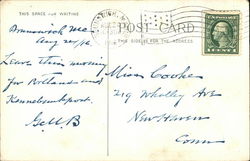 THIS SPACE FOR WRITING
POST CARD
THIS SIDE FOR THE ADDRESS
Brunswick Me
Aug 20/16.
Leave this morning
for Portland and
Kennebunkport.
G.M.B
Miss Cooke
219 Whalley Ave
New Haven
Conn